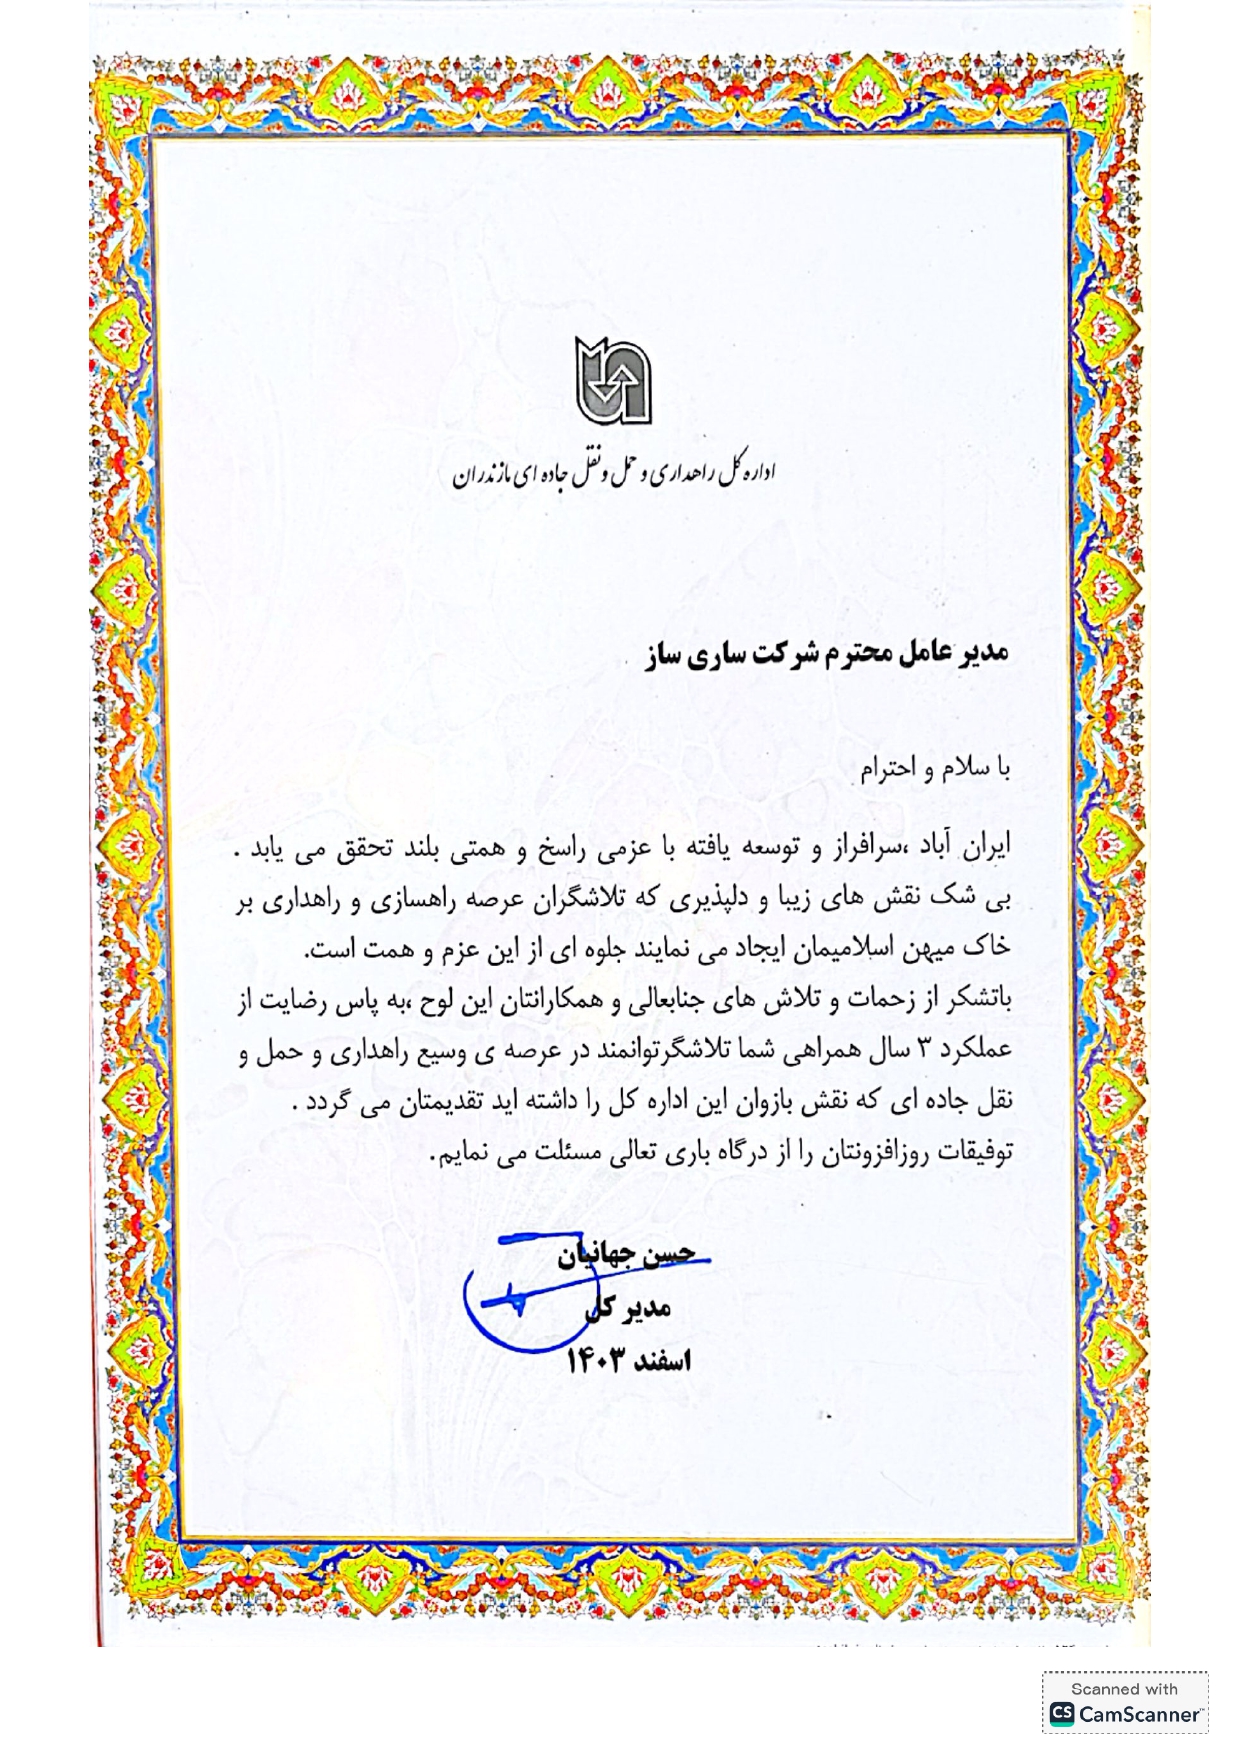 اداره کل راهداری و حمل و نقل جاده ای مازندران
مدیر عامل محترم شرکت ساری ساز
با سلام و احترام
ایران آباد ،سرافراز و توسعه یافته با عزمی راسخ و همتی بلند تحقق می یابد .
بی شک نقش های زیبا و دلپذیری که تلاشگران عرصه راهسازی و راهداری بر
خاک میهن اسلامیمان ایجاد می نمایند جلوه ای از این عزم و همت است.
باتشکر از زحمات و تلاش های جنابعالی و همکارانتان این لوح ،به پاس رضایت از
عملکرد ۳ سال همراهی شما تلاشگرتوانمند در عرصه ی وسیع راهداری و حمل و
نقل جاده ای که نقش بازوان این اداره کل را داشته اید تقدیمتان می گردد .
توفیقات روزافزونتان را از درگاه باری تعالی مسئلت می نمایم.
حسن جهانیان
مدیر کل
اسفند ۱۴۰۳
Scanned with
CS CamScanner